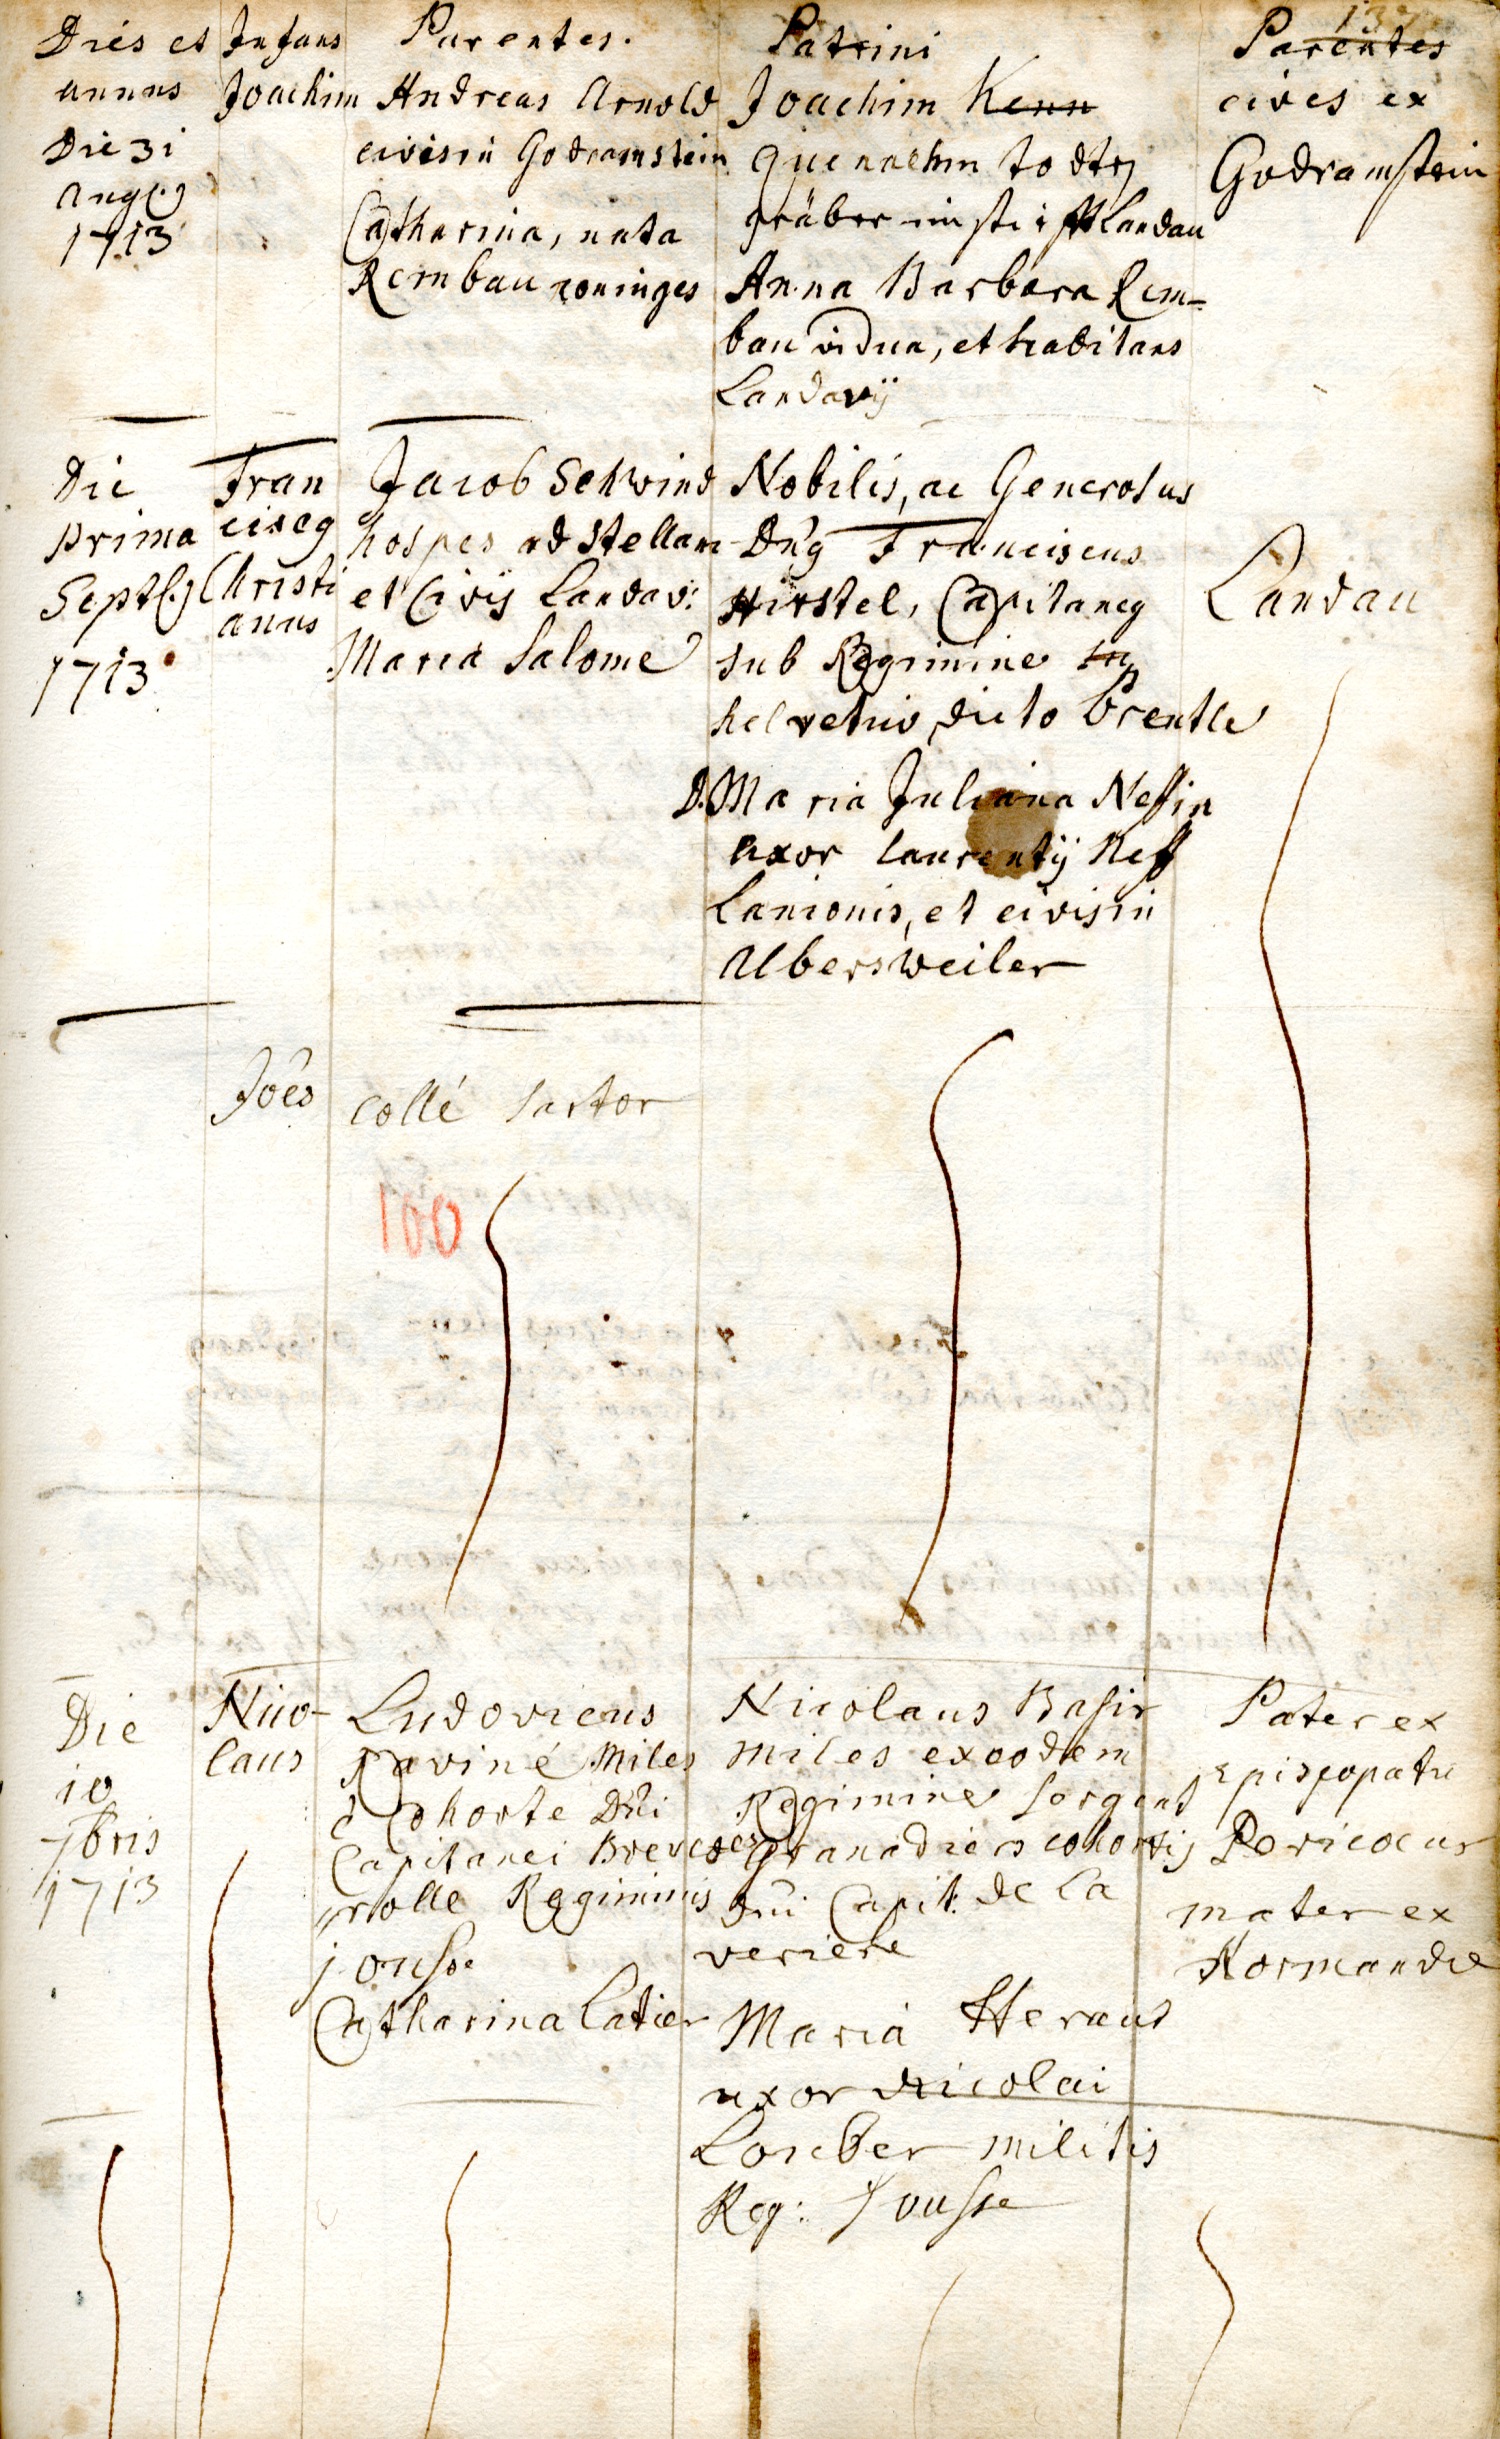 137
Dies et
annus
Infans
Parentes.
Patrini
Parentes
Die 31
Augq
1713
Joachim
Andreas Arnold
civis in Godramstein
Catharina, nata
Rembau coniuges
Joachim Kenn
Quenaehm todte
gräber im stifft Landau
Anna Barbara Rem-
bau vidua, et habitans
Landavij
cives ex
Godramstein
Die
prima
Septq
1713
Fran
ciscq
Christi
anus
Jacob Schwind
hospes ad stellam
et Civis Landav:
Maria Salome
Nobilis, ac Generosus
Dnq Franciscus
Hirstel, Capitaneq
sub Regimine
helvetico dicto Brentle
D. Maria Juliana Neffin
uxor laurentij Neff
Lanionis, et civis in
Albersweiler
Landau
Joês
collé sartor
100
Die
10
7bris
1713
Nico-
laus
Ludovicus
Raviné Miles
è Cohorte Dni
Capitanei Breucoes
rolle Regiminis
jousse
Catharina Latier
Nicolaus Basir
Miles ex eodem
Regimine sergent
Granadiers cohortis
Dni Capit. de la
veriere
Maria Heraut
uxor Nicolai
Loreber militis
Reg: Jousse
Pater ex
Episcopatu
Pericoeur
mater ex
Normandie